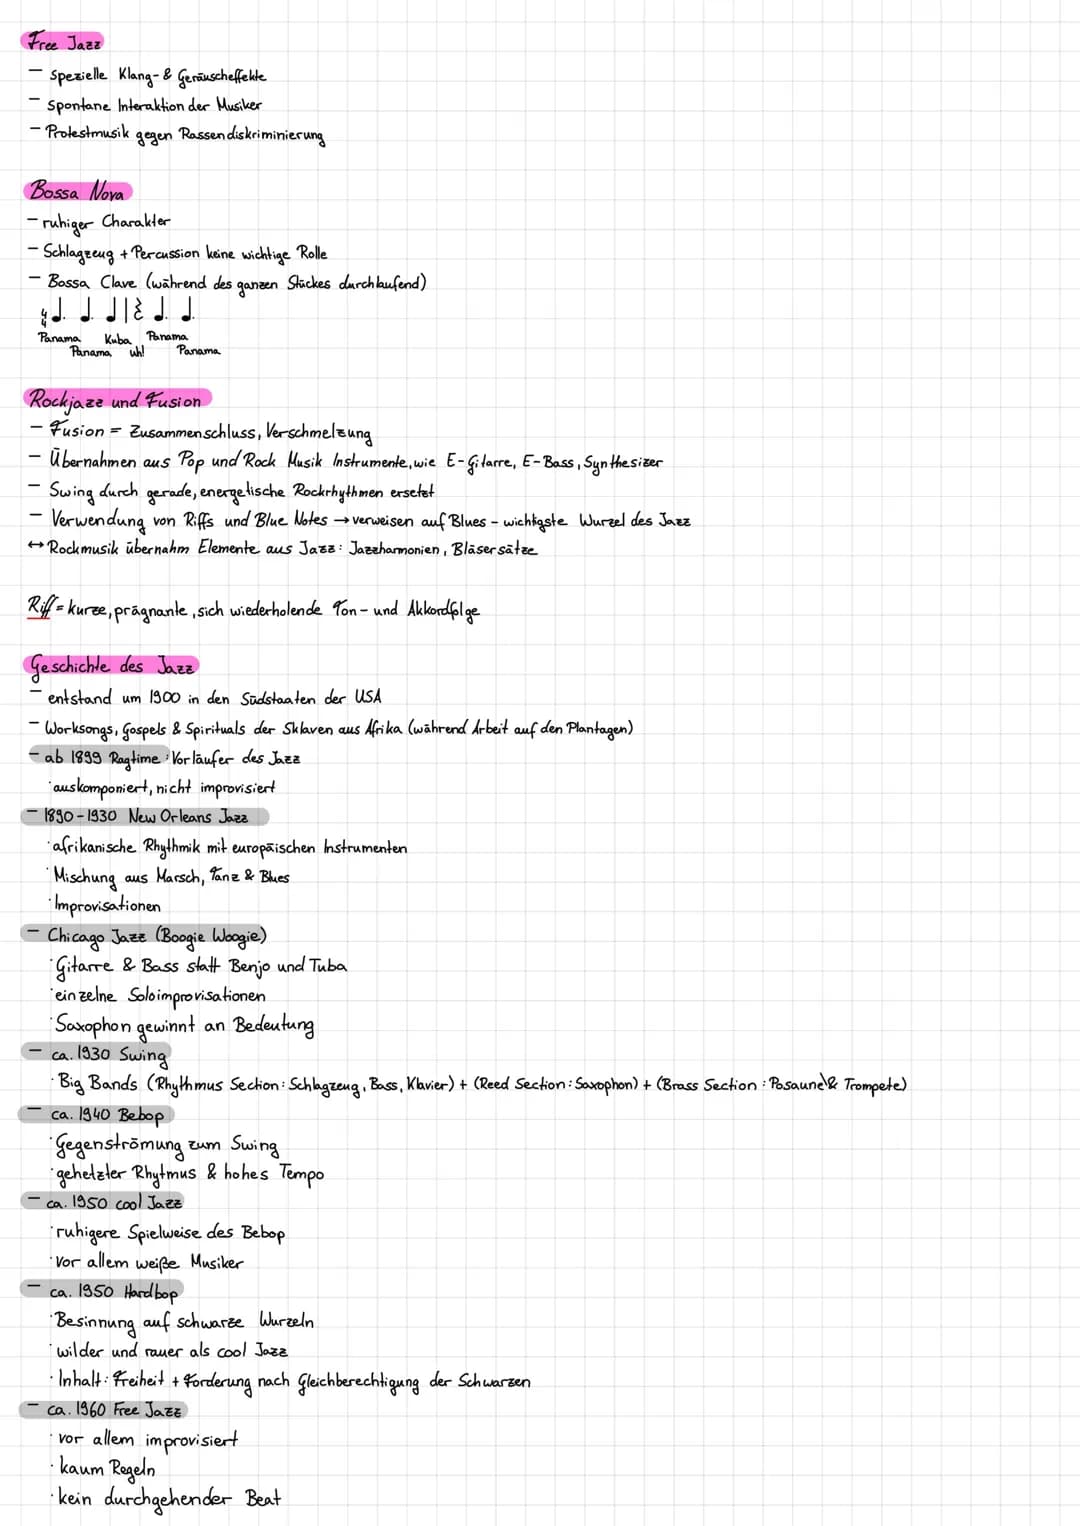 Free Jazz
- Spezielle Klang- & Geräuscheffekte
- Spontane Interaktion der Musiker
- Protestmusik gegen Rassendiskriminierung
Bossa Nova
- ruhiger Charakter
- Schlagzeug + Percussion keine wichtige Rolle
- Bossa Clave (während des ganzen Stückes durchlaufend)
4/4 ♩. ♩. ♩ | 𝄽 ♩. ♩.
Panama Kuba Panama
Panama uh! Panama
Rockjazz und Fusion
- Fusion = Zusammenschluss, Verschmelzung
- Übernahmen aus Pop und Rock Musik Instrumente, wie E-Gitarre, E-Bass, Synthesizer
- Swing durch gerade, energetische Rockrhythmen ersetzt
- Verwendung von Riffs und Blue Notes → verweisen auf Blues - wichtigste Wurzel des Jazz
↔ Rockmusik übernahm Elemente aus Jazz: Jazzharmonien, Bläsersätze
Riff = kurze, prägnante, sich wiederholende Ton- und Akkordfolge
Geschichte des Jazz
- entstand um 1900 in den Südstaaten der USA
- Worksongs, Gospels & Spirituals der Sklaven aus Afrika (während Arbeit auf den Plantagen)
- ab 1899 Ragtime: Vorläufer des Jazz
· auskomponiert, nicht improvisiert
- 1890-1930 New Orleans Jazz
· afrikanische Rhythmik mit europäischen Instrumenten
· Mischung aus Marsch, Tanz & Blues
· Improvisationen
- Chicago Jazz (Boogie Woogie)
· Gitarre & Bass statt Benjo und Tuba
· einzelne Soloimprovisationen
· Saxophon gewinnt an Bedeutung
- ca. 1930 Swing
· Big Bands (Rhythmus Section: Schlagzeug, Bass, Klavier) + (Reed Section: Saxophon) + (Brass Section: Posaune & Trompete)
- ca. 1940 Bebop
· Gegenströmung zum Swing
· gehetzter Rhytmus & hohes Tempo
- ca. 1950 cool Jazz
· ruhigere Spielweise des Bebop
· vor allem weiße Musiker
- ca. 1950 Hardbop
· Besinnung auf schwarze Wurzeln
· wilder und rauer als cool Jazz
· Inhalt: Freiheit + Forderung nach Gleichberechtigung der Schwarzen
- ca. 1960 Free Jazz
· vor allem improvisiert
· kaum Regeln
· kein durchgehender Beat